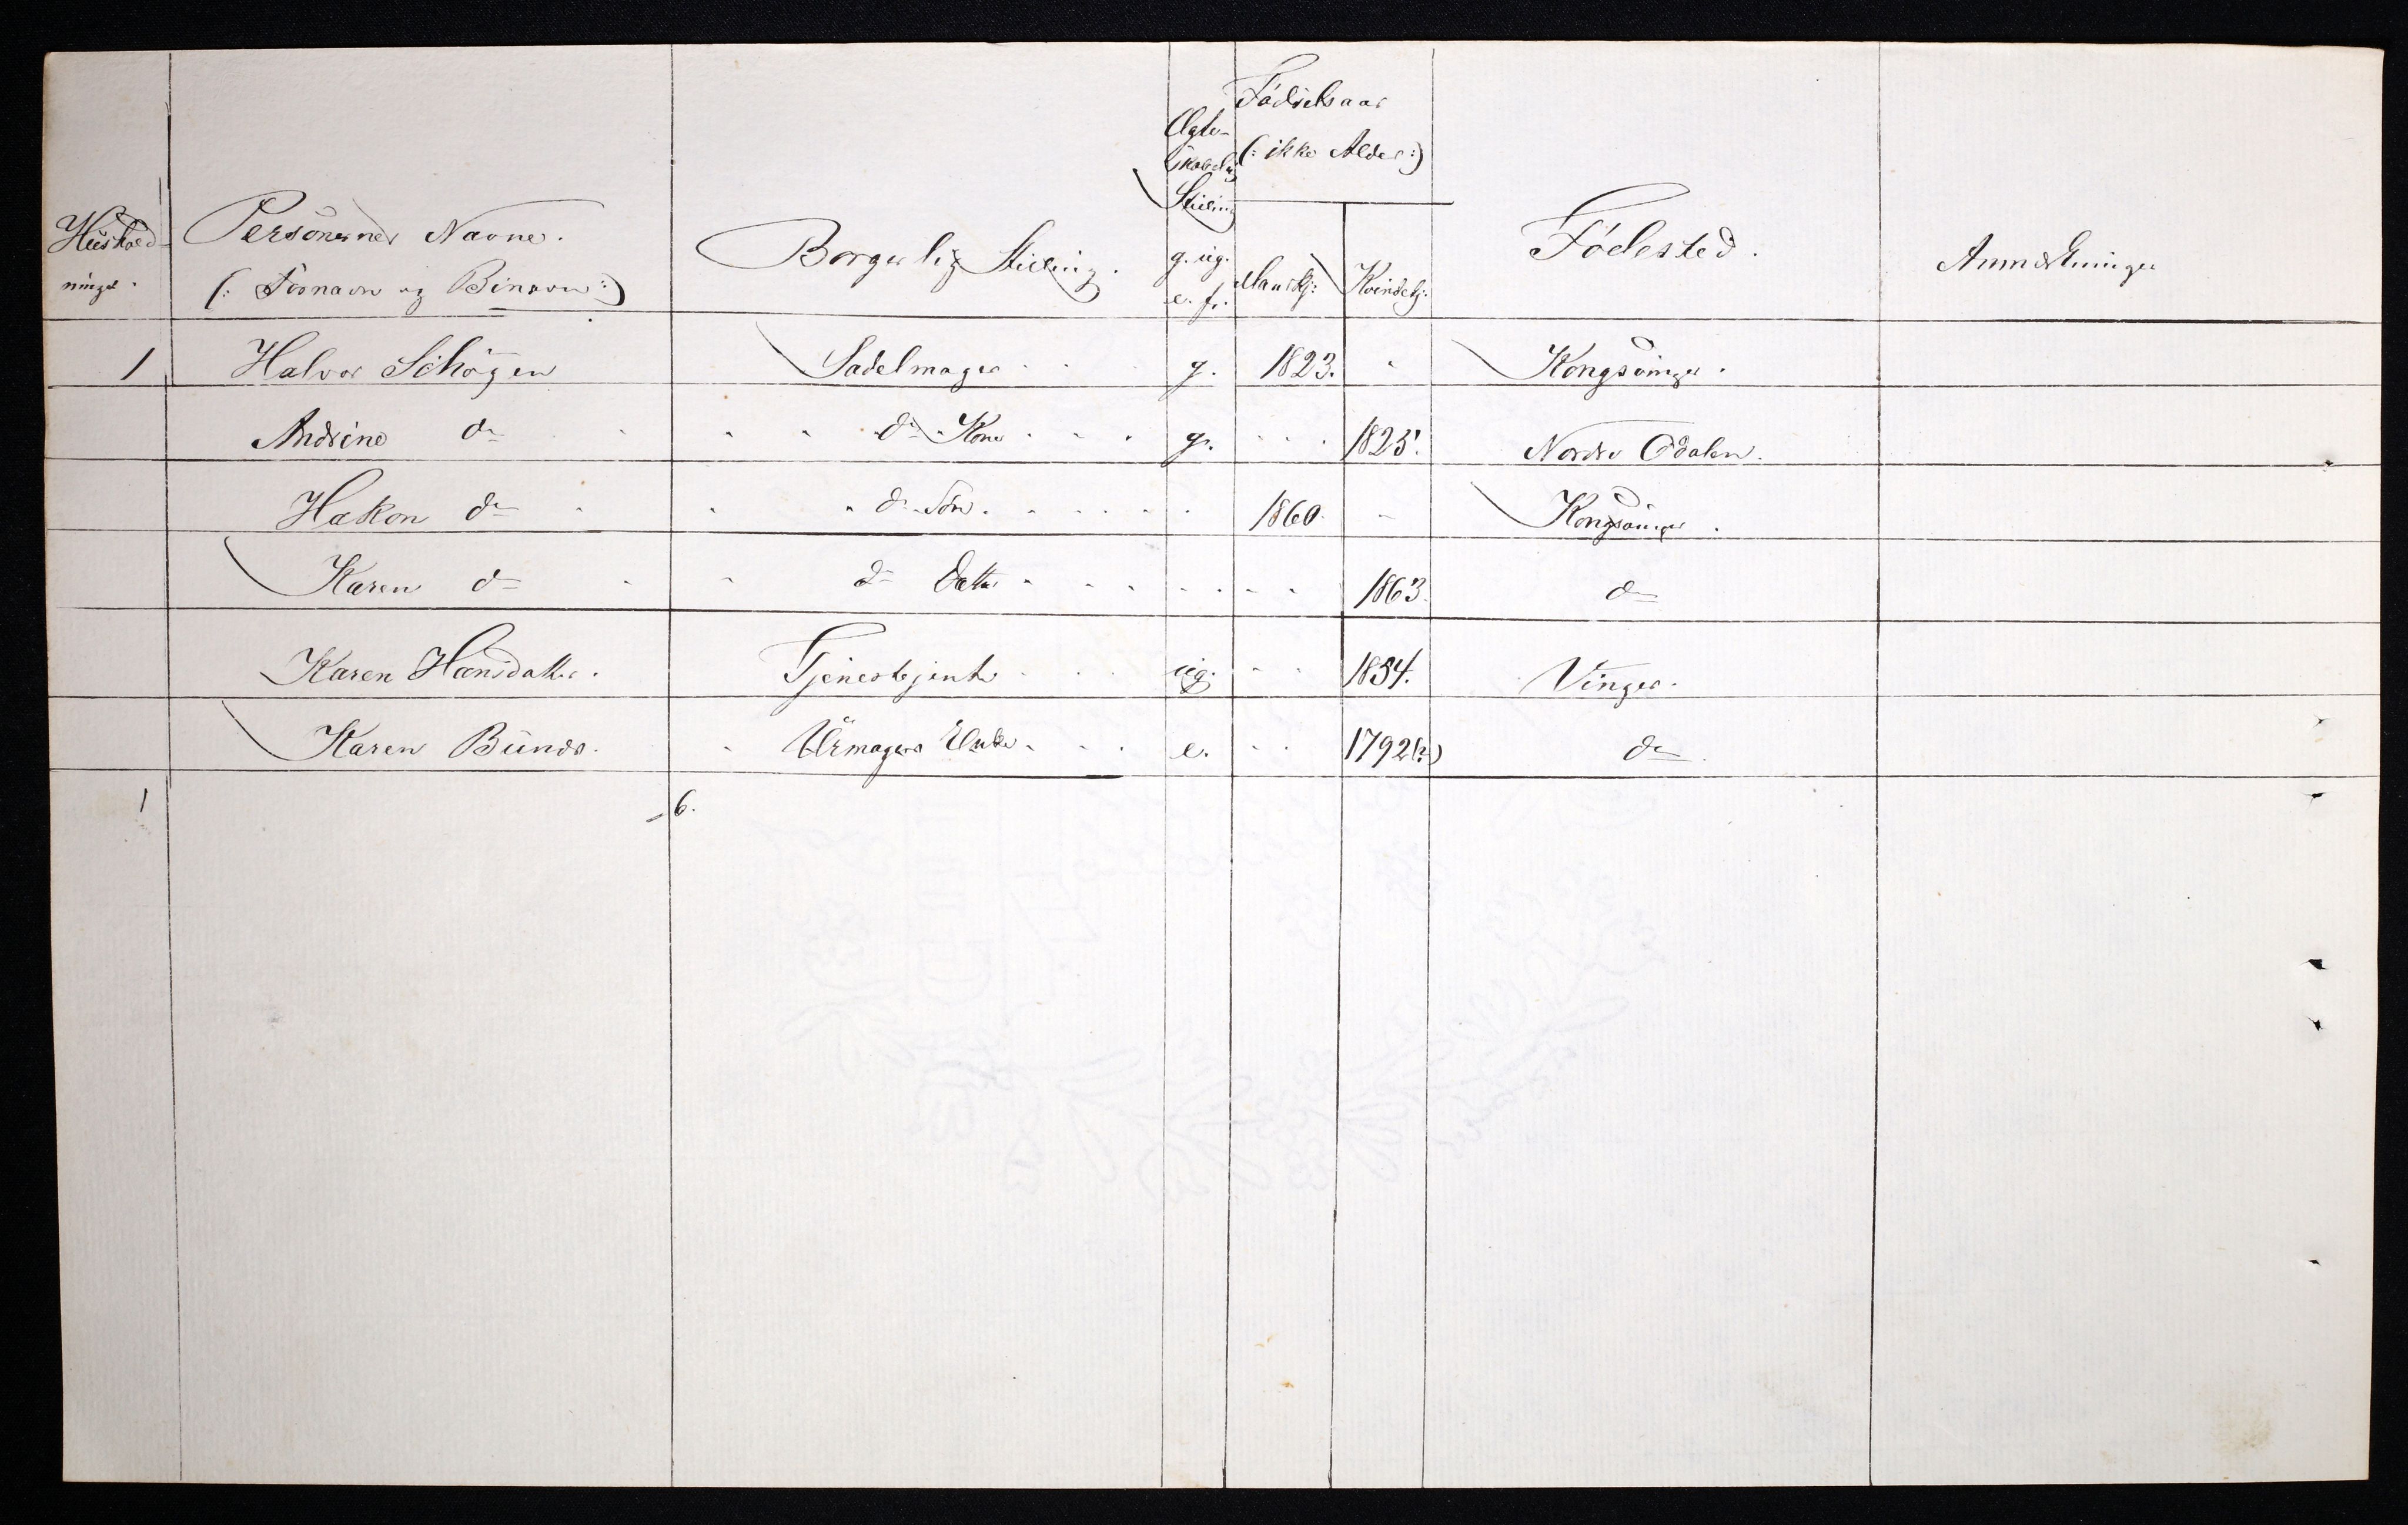 Fødselsaar
Ægte-
(: ikke Alder :)
skabelig
Stilling
Huushold-
ninger.
Personernes Navne.
(: Fornavn og Binavn :)
Borgerlig Stilling.
g. ug.
e. f.
Mandkj:
Kvindekj:
Fødested.
Anmærkninger
1 Halvor Schøyen Sadelmager g. 1823. " Kongsvinger.
Andrine do do Kone g. 1825. Nordre Odalen.
Hakon do do Søn. 1860. " Kongsvinger.
Karen do do Datter 1863. do
Karen Hansdatter. Tjenestejente ug. 1834. Vinger.
Karen Bunds. Uhrmagers Enke e. 1792(?) do
1 6.